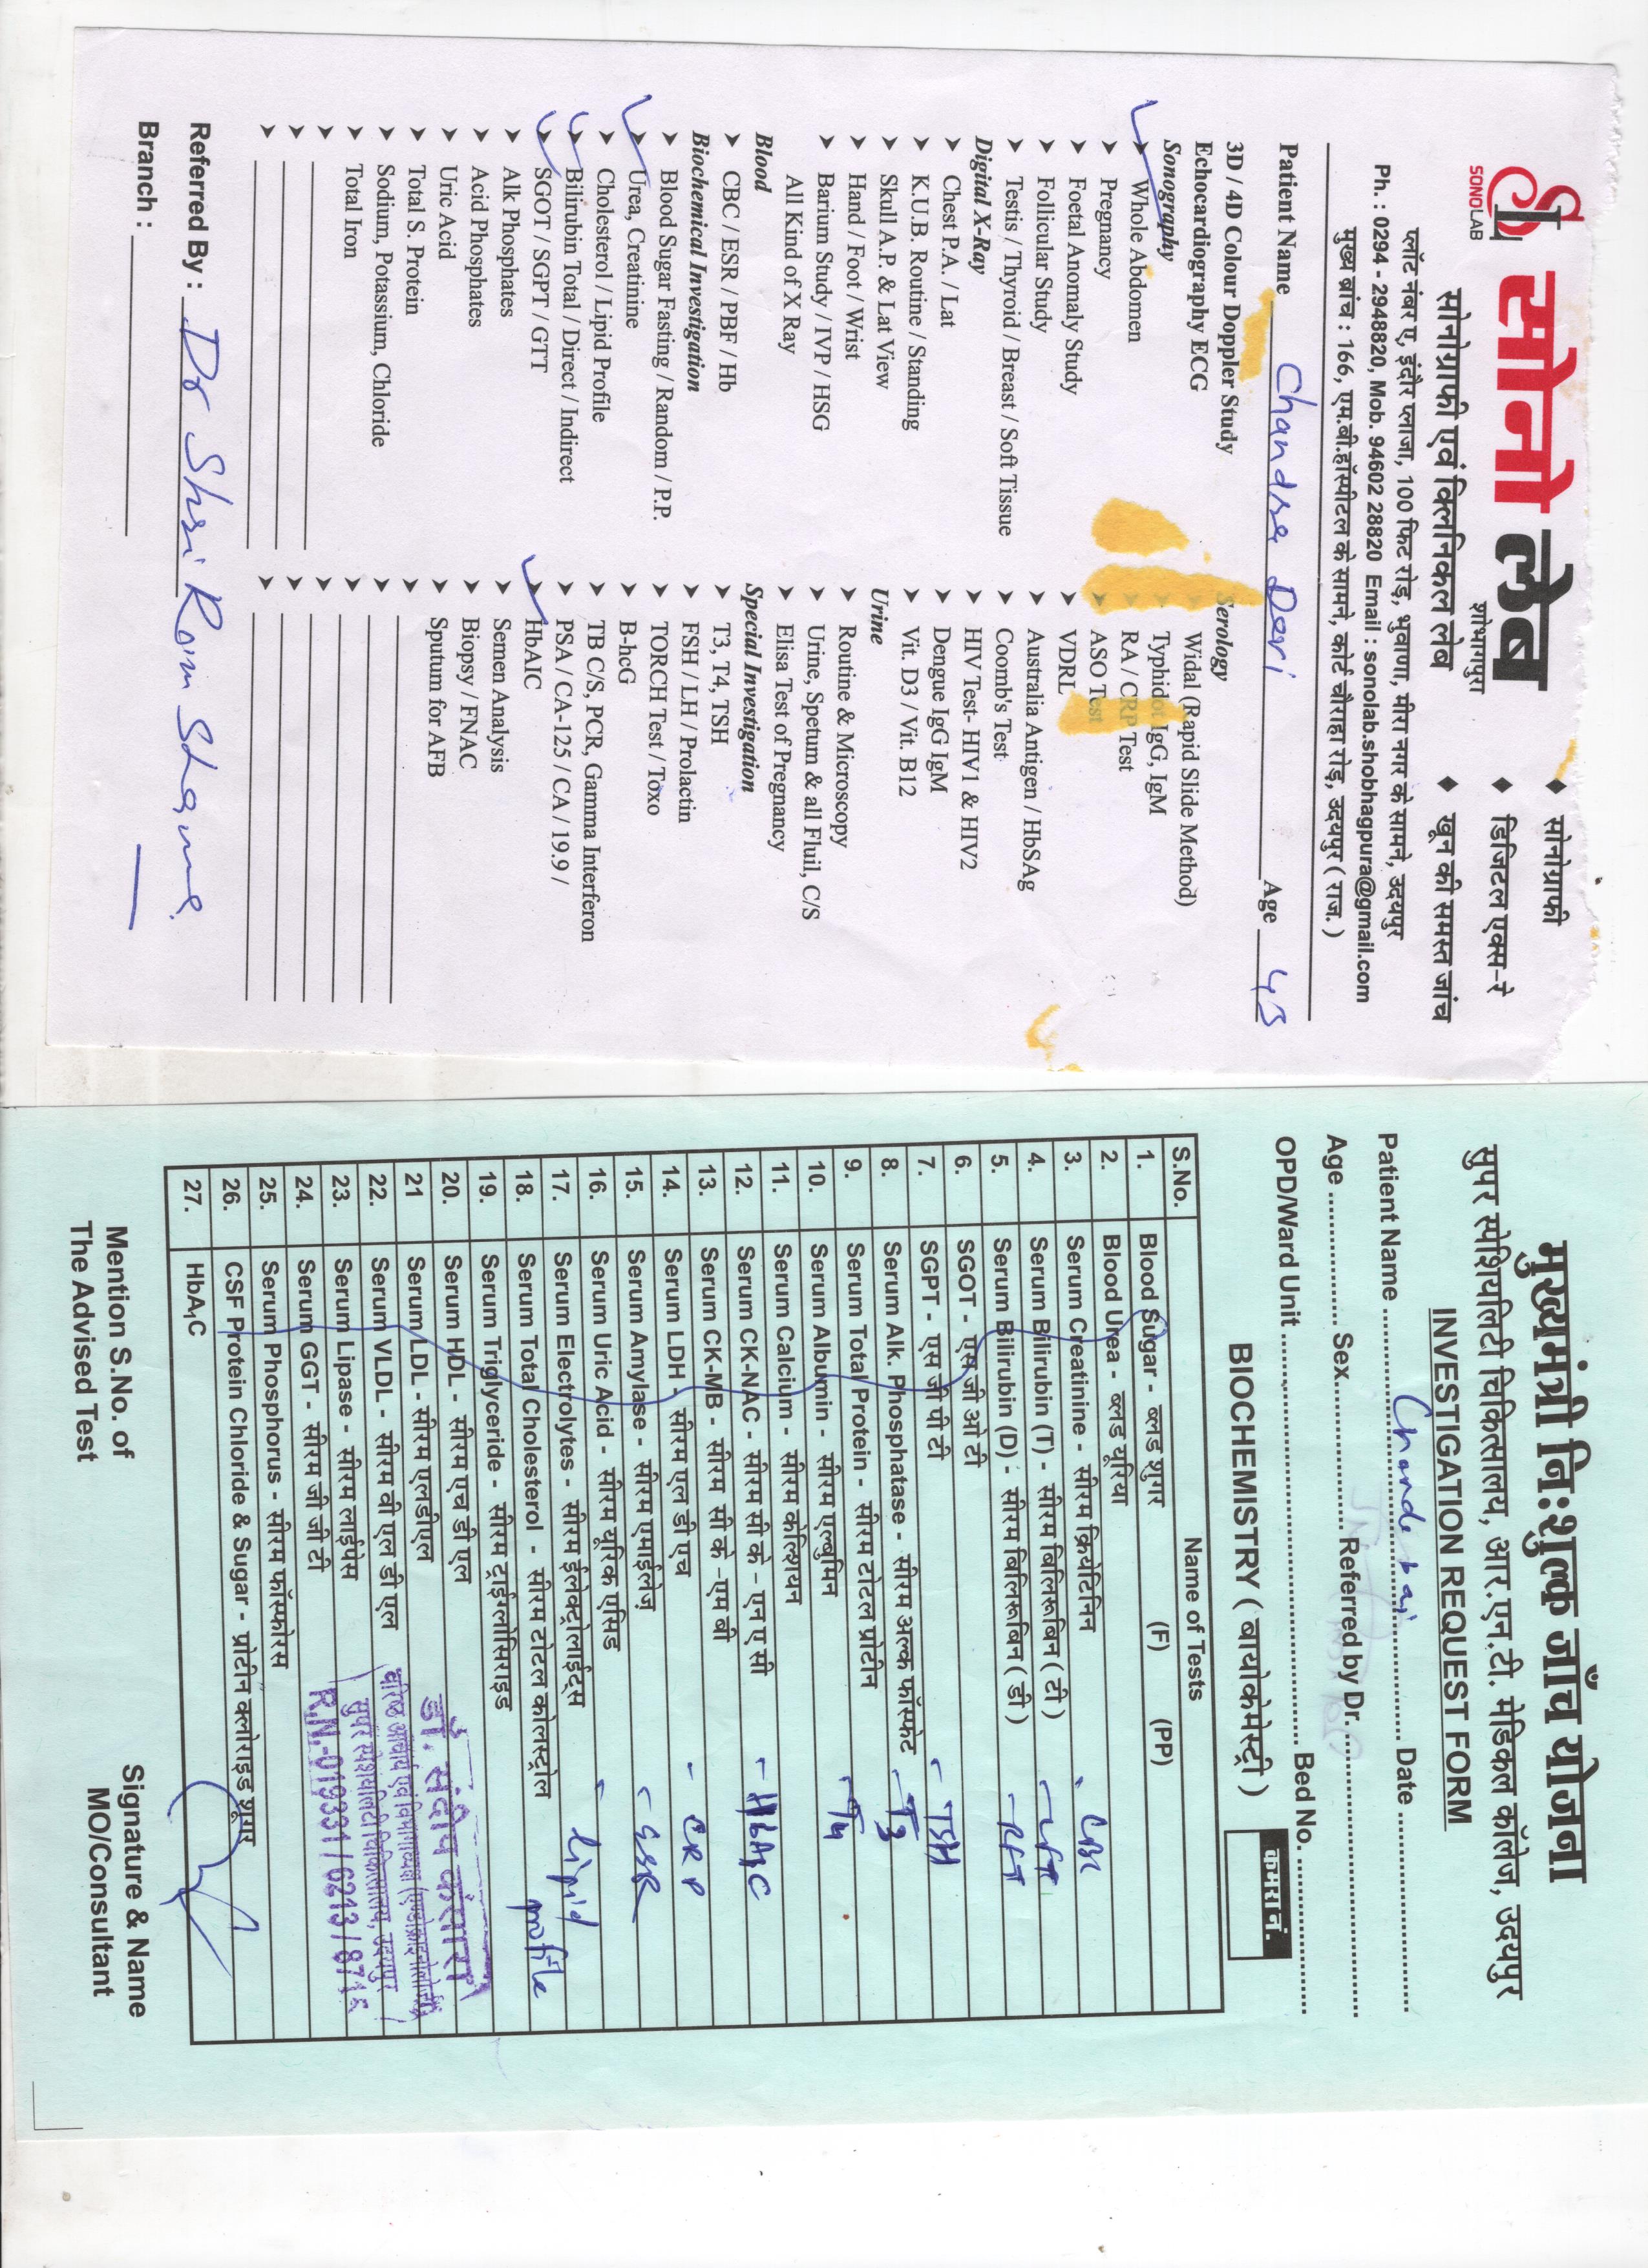 SL
SONOLAB
सोनो लेब
शोभागपुरा
सोनोग्राफी एवं क्लिनिकल लेब
♦ सोनोग्राफी
♦ डिजिटल एक्स-रे
♦ खून की समस्त जांच
प्लॉट नंबर ए, इंदौर प्लाजा, 100 फिट रोड़, भुवाणा, मीरा नगर के सामने, उदयपुर
Ph. : 0294 - 2948820, Mob. 94602 28820 Email : sonolab.shobhagpura@gmail.com
मुख्य ब्रांच : 166, एम.बी.हॉस्पीटल के सामने, कोर्ट चौराहा रोड़, उदयपुर ( राज. )
Patient Name Chandra Devi Age 43
3D / 4D Colour Doppler Study
Echocardiography ECG
Sonography
➤ Whole Abdomen
➤ Pregnancy
➤ Foetal Anomaly Study
➤ Follicular Study
➤ Testis / Thyroid / Breast / Soft Tissue
Digital X-Ray
➤ Chest P.A. / Lat
➤ K.U.B. Routine / Standing
➤ Skull A.P. & Lat View
➤ Hand / Foot / Wrist
➤ Barium Study / IVP / HSG
All Kind of X Ray
Blood
➤ CBC / ESR / PBF / Hb
Biochemical Investigation
➤ Blood Sugar Fasting / Random / P.P.
➤ Urea, Creatinine
➤ Cholesterol / Lipid Profile
➤ Bilirubin Total / Direct / Indirect
➤ SGOT / SGPT / GTT
➤ Alk Phosphates
➤ Acid Phosphates
➤ Uric Acid
➤ Total S. Protein
➤ Sodium, Potassium, Chloride
➤ Total Iron
Serology
Widal (Rapid Slide Method)
➤ Typhidot IgG, IgM
➤ RA / CRP Test
➤ ASO Test
➤ VDRL
➤ Australia Antigen / HbSAg
➤ Coomb's Test
➤ HIV Test- HIV1 & HIV2
➤ Dengue IgG IgM
➤ Vit. D3 / Vit. B12
Urine
➤ Routine & Microscopy
➤ Urine, Spetum & all Fluil, C/S
➤ Elisa Test of Pregnancy
Special Investigation
➤ T3, T4, TSH
➤ FSH / LH / Prolactin
➤ TORCH Test / Toxo
➤ B-hcG
➤ TB C/S, PCR, Gamma Interferon
➤ PSA / CA-125 / CA / 19.9 /
➤ HbAIC
➤ Semen Analysis
➤ Biopsy / FNAC
➤ Sputum for AFB
Referred By : Dr Shri Ram Sharma
Branch :
मुख्यमंत्री नि:शुल्क जाँच योजना
सुपर स्पेशियलिटी चिकित्सालय, आर.एन.टी. मेडिकल कॉलेज, उदयपुर
INVESTIGATION REQUEST FORM
Patient Name Chanda bai Date
Age Sex Referred by Dr.
OPD/Ward Unit Bed No.
BIOCHEMISTRY ( बायोकेमेस्ट्री )
कमरा नं.
S.No. Name of Tests
1. Blood Sugar - ब्लड शुगर (F) (PP)
2. Blood Urea - ब्लड यूरिया
3. Serum Creatinine - सीरम क्रियेटिनिन - CBC
4. Serum Bilirubin (T) - सीरम बिलिरूबिन ( टी ) - LFT
5. Serum Bilirubin (D) - सीरम बिलिरूबिन ( डी ) - RFT
6. SGOT - एस जी ओ टी
7. SGPT - एस जी पी टी - TSH
8. Serum Alk. Phosphatase - सीरम अल्क फॉस्फेट - T3
9. Serum Total Protein - सीरम टोटल प्रोटीन - T4
10. Serum Albumin - सीरम एल्बुमिन
11. Serum Calcium - सीरम केल्शियन
12. Serum CK-NAC - सीरम सी के - एन ए सी - HbA1C
13. Serum CK-MB - सीरम सी के -एम बी
14. Serum LDH - सीरम एल डी एच - CRP
15. Serum Amylase - सीरम एमाईलेज़ - ESR
16. Serum Uric Acid - सीरम यूरिक एसिड
17. Serum Electrolytes - सीरम ईलेक्ट्रोलाईट्स - Lipid
18. Serum Total Cholesterol - सीरम टोटल कोलस्ट्रोल profile
19. Serum Triglyceride - सीरम ट्राईग्लोसिराइड
20. Serum HDL - सीरम एच डी एल
21 Serum LDL - सीरम एलडीएल
22. Serum VLDL - सीरम वी एल डी एल
23. Serum Lipase - सीरम लाईपेस
24. Serum GGT - सीरम जी जी टी
25. Serum Phosphorus - सीरम फॉस्फोरस
26. CSF Protein Chloride & Sugar - प्रोटीन क्लोराइड शूगर
27. HbA1C
डॉ. संदीप कंसारा
वरिष्ठ आचार्य एवं विभागाध्यक्ष (एण्डोक्राइनोलोजी)
सुपर स्पेशयलिटी चिकित्सालय, उदयपुर
R.N.-019331 / 6243 / 8715
Mention S.No. of
The Advised Test
Signature & Name
MO/Consultant